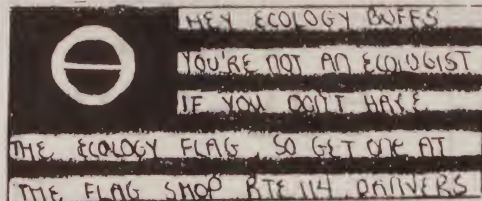 HEY ECOLOGY BUFFS
YOU'RE NOT AN ECOLOGIST
IF YOU DON'T HAVE
THE ECOLOGY FLAG, SO GET ONE AT
THE FLAG SHOP RTE 114 DANVERS